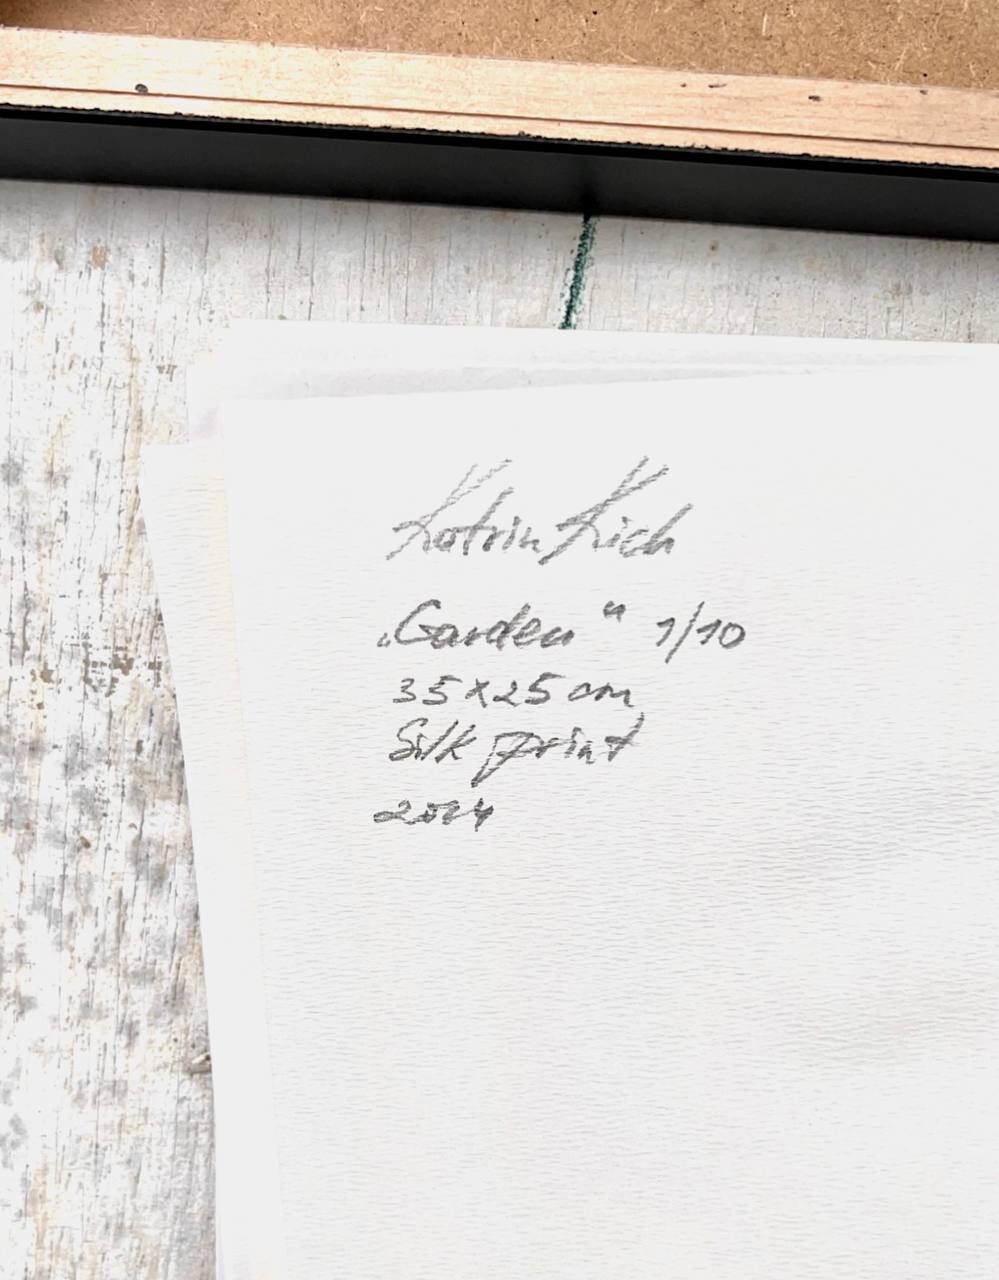 Katrin Kich
„Garden“ 1/10
35x25 cm
Silk print
2024